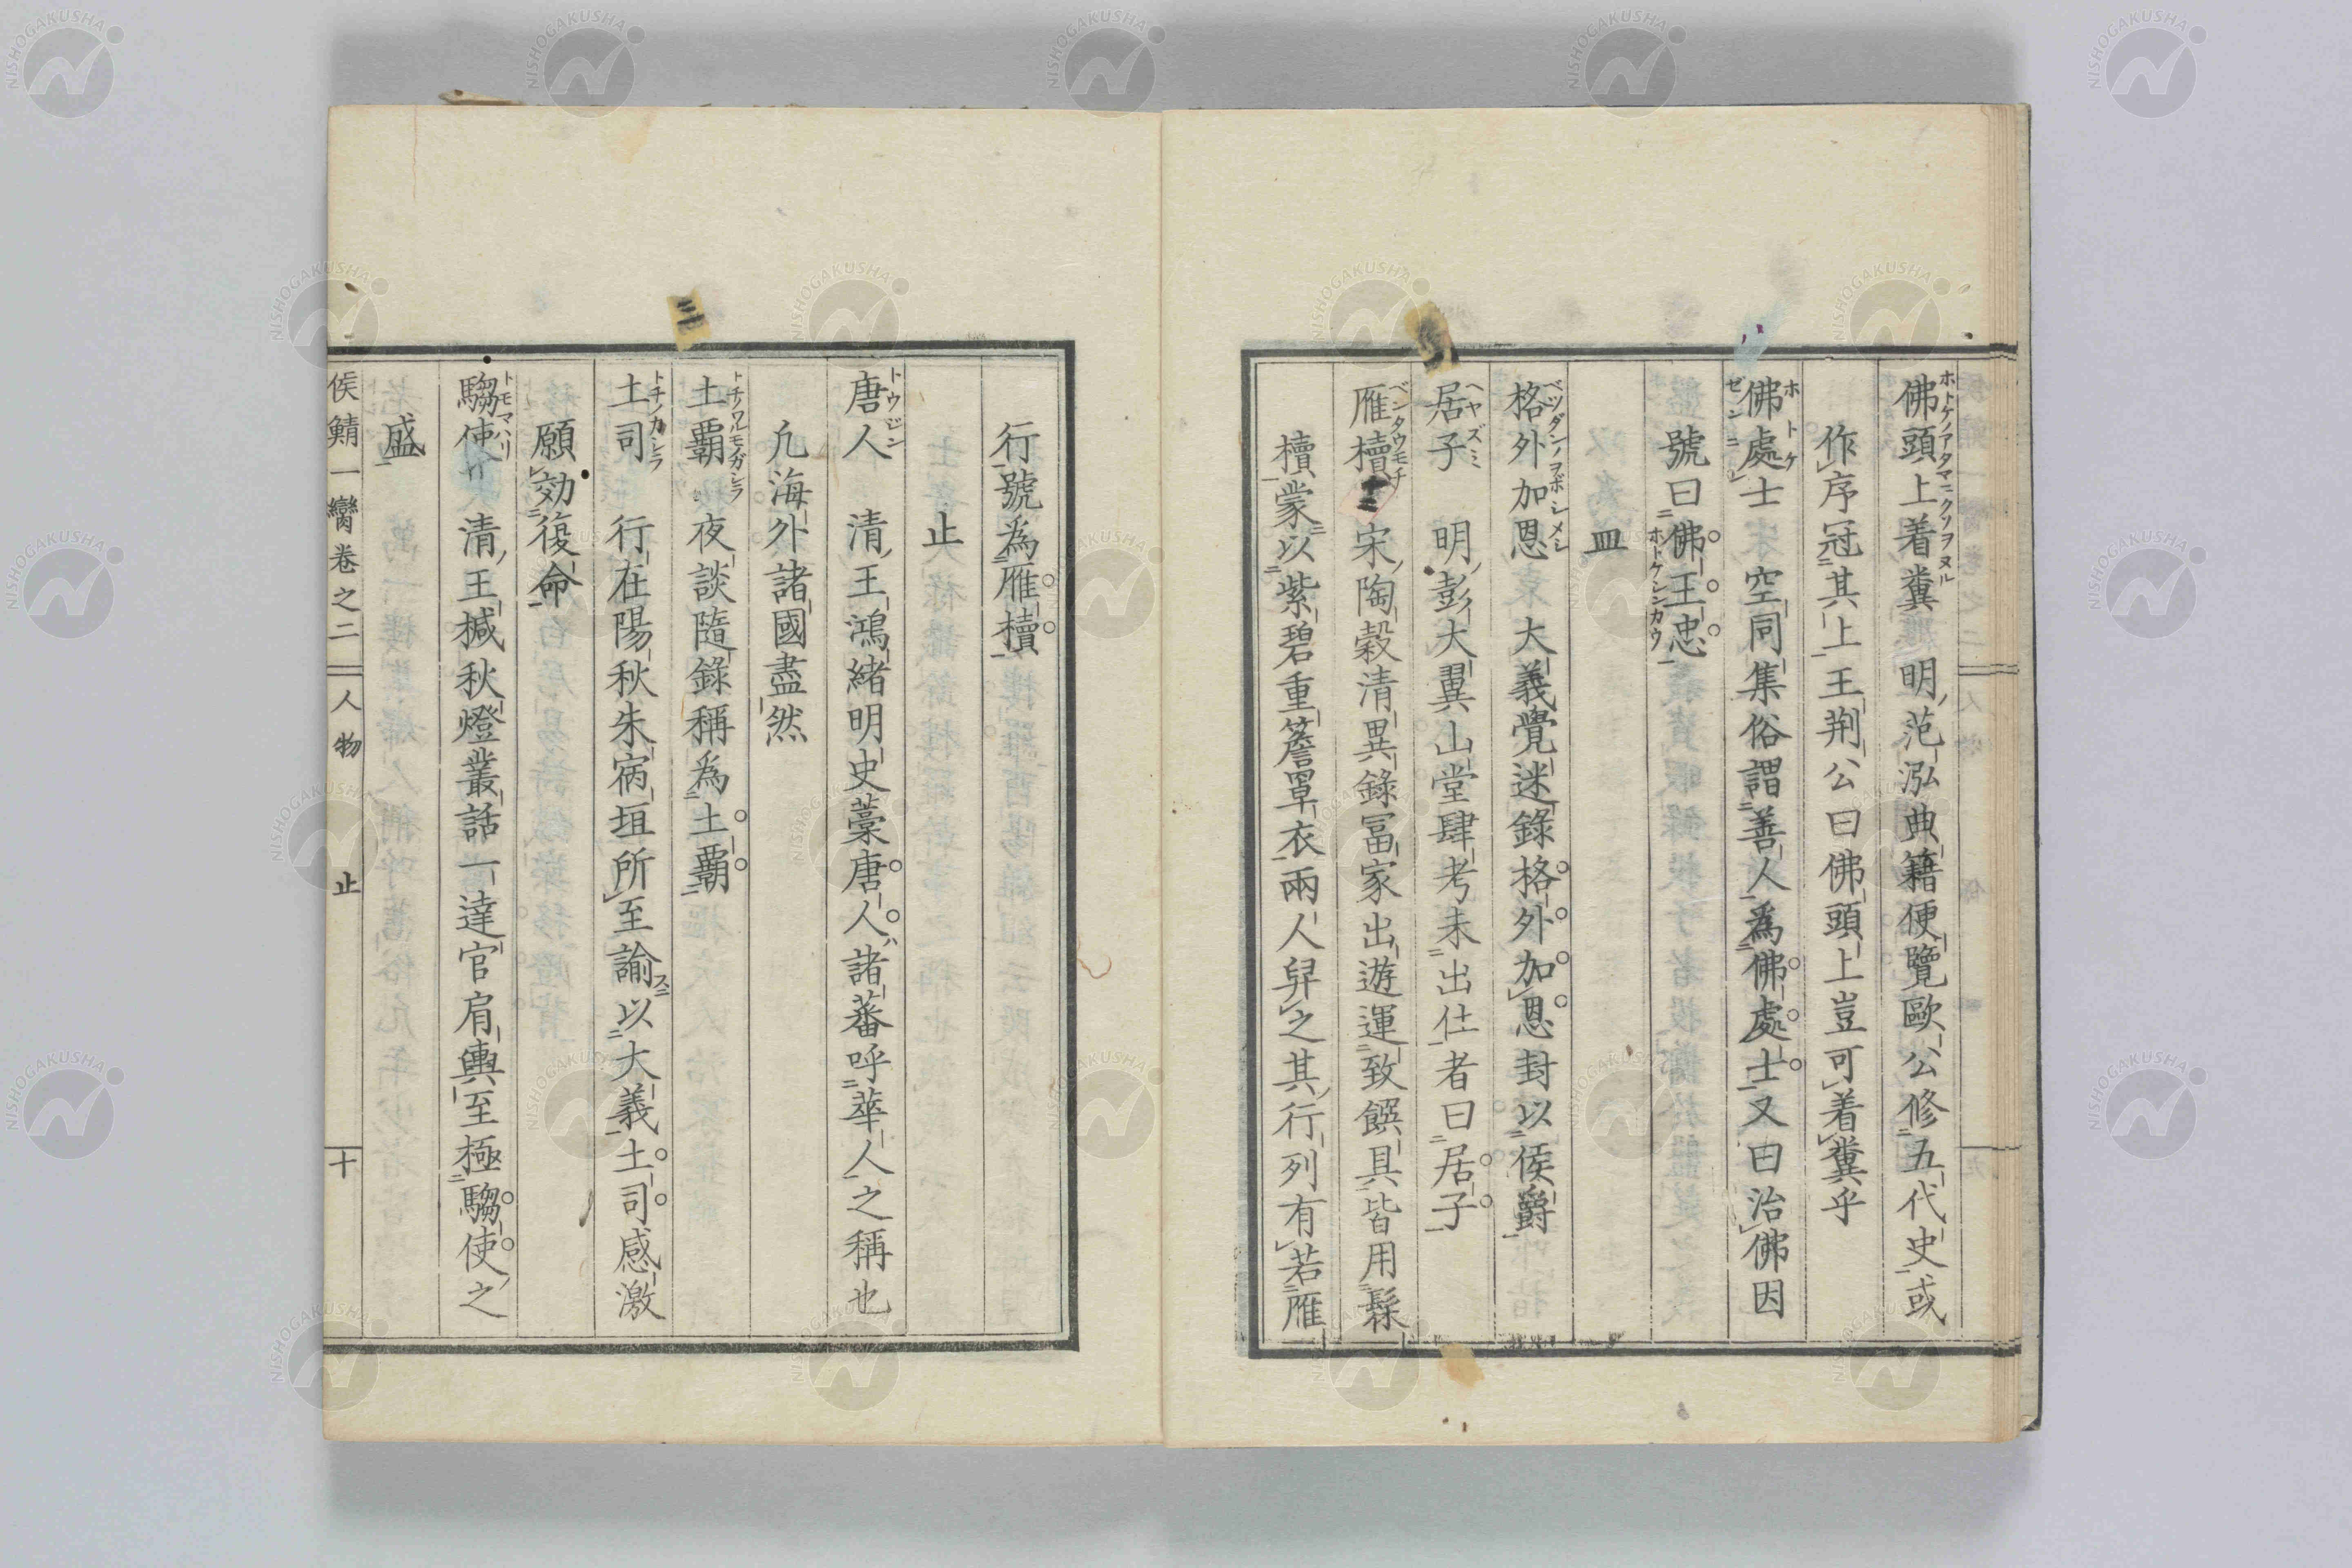 佛頭上着糞 明范泓典籍便覽歐公修五代史或
作序冠其上王荆公曰佛頭上豈可着糞乎
佛處士 空同集俗謂善人爲佛處士又曰治佛因
號曰佛王忠
皿
格外加恩 大義覺迷錄格外加恩封以侯爵
居子 明彭大翼山堂肆考未出仕者曰居子
雁櫝 宋陶穀清異錄冨家出遊運致饌具皆用髹
櫝蒙以紫碧重簷罩衣兩人舁之其行列有若雁
行號爲雁櫝
止
唐人 清王鴻緒明史藁唐人諸蕃呼華人之稱也
凢海外諸國盡然
土覇 夜談隨錄稱爲土覇
土司 行在陽秋朱㾛垣所至諭以大義土司感激
願効復命
騶使 清王椷秋燈叢話一達官肩輿至極騶使之
盛
侯鯖一臠卷之二 人物 止 十